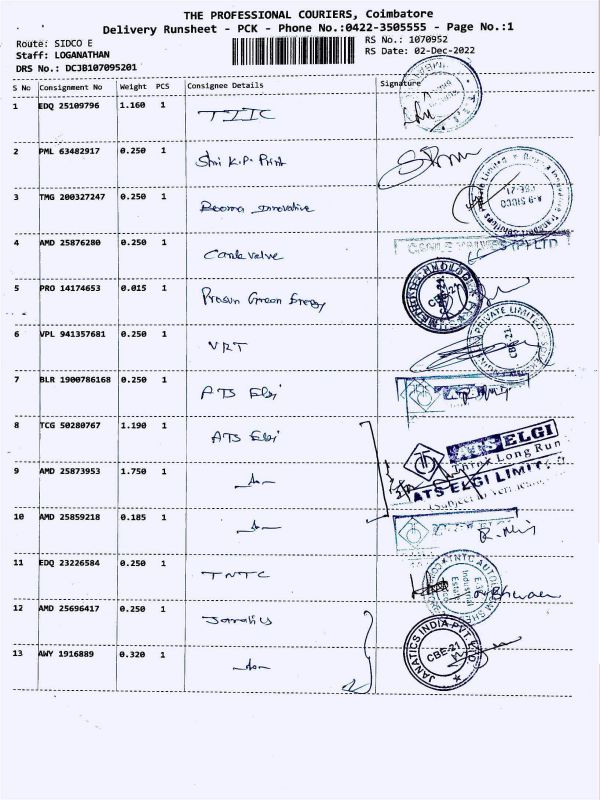 THE PROFESSIONAL COURIERS, Coimbatore
Delivery Runsheet - PCK - Phone No.:0422-3505555 - Page No.:1
Route: SIDCO E
RS No.: 1070952
Staff: LOGANATHAN
RS Date: 02-Dec-2022
DRS No.: DCJB107095201
S No Consignment No Weight PCS Consignee Details Signature
1 EDQ 25109796 1.160 1 TIIC
2 PML 63482917 0.250 1 Shri K.P. Print
3 TMG 200327247 0.250 1 Booma Innovative
A-9 SIDCO
CBE-21
4 AMD 25876280 0.250 1 Conle valve
CONLE VALVES (P) LTD
5 PRO 14174653 0.015 1 Green Energy
CBE-21
6 VPL 941357681 0.250 1 VRT
PRIVATE LIMITED
CBE-21
7 BLR 1900786168 0.250 1 ATS Elgi
8 TCG 50280767 1.190 1 ATS Elgi
ATS ELGI
Think Long Run
ATS ELGI LIMITED
9 AMD 25873953 1.750 1 -do-
10 AMD 25859218 0.185 1 -do-
11 EDQ 23226584 0.250 1 TNTC
Industrial
12 AMD 25696417 0.250 1 Janatics
JANATICS INDIA PVT. LTD
CBE-21
13 AWY 1916889 0.320 1 -do-